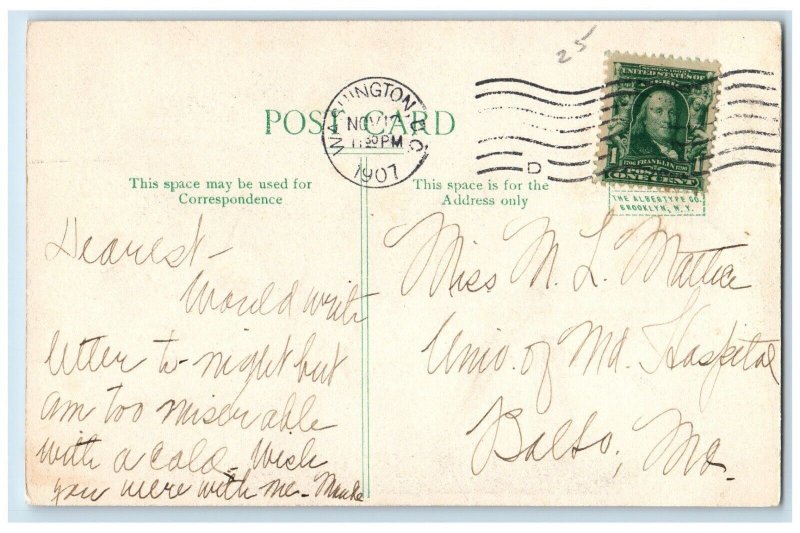 25
POST CARD
WASHINGTON, D.C.
NOV 17
11 30 PM
1907
D
SERIES 1902
UNITED STATES OF
1 1
1706 FRANKLIN 1790
POSTAGE
ONE CENT
THE ALBERTYPE CO.
BROOKLYN, N.Y.
This space may be used for
Correspondence
This space is for the
Address only
Dearest –
Would write
letter to-night but
am too miserable
with a cold – Wish
you were with me –
Miss M. L. Mattice
Univ. of Md. Hospital
Balto, Md.